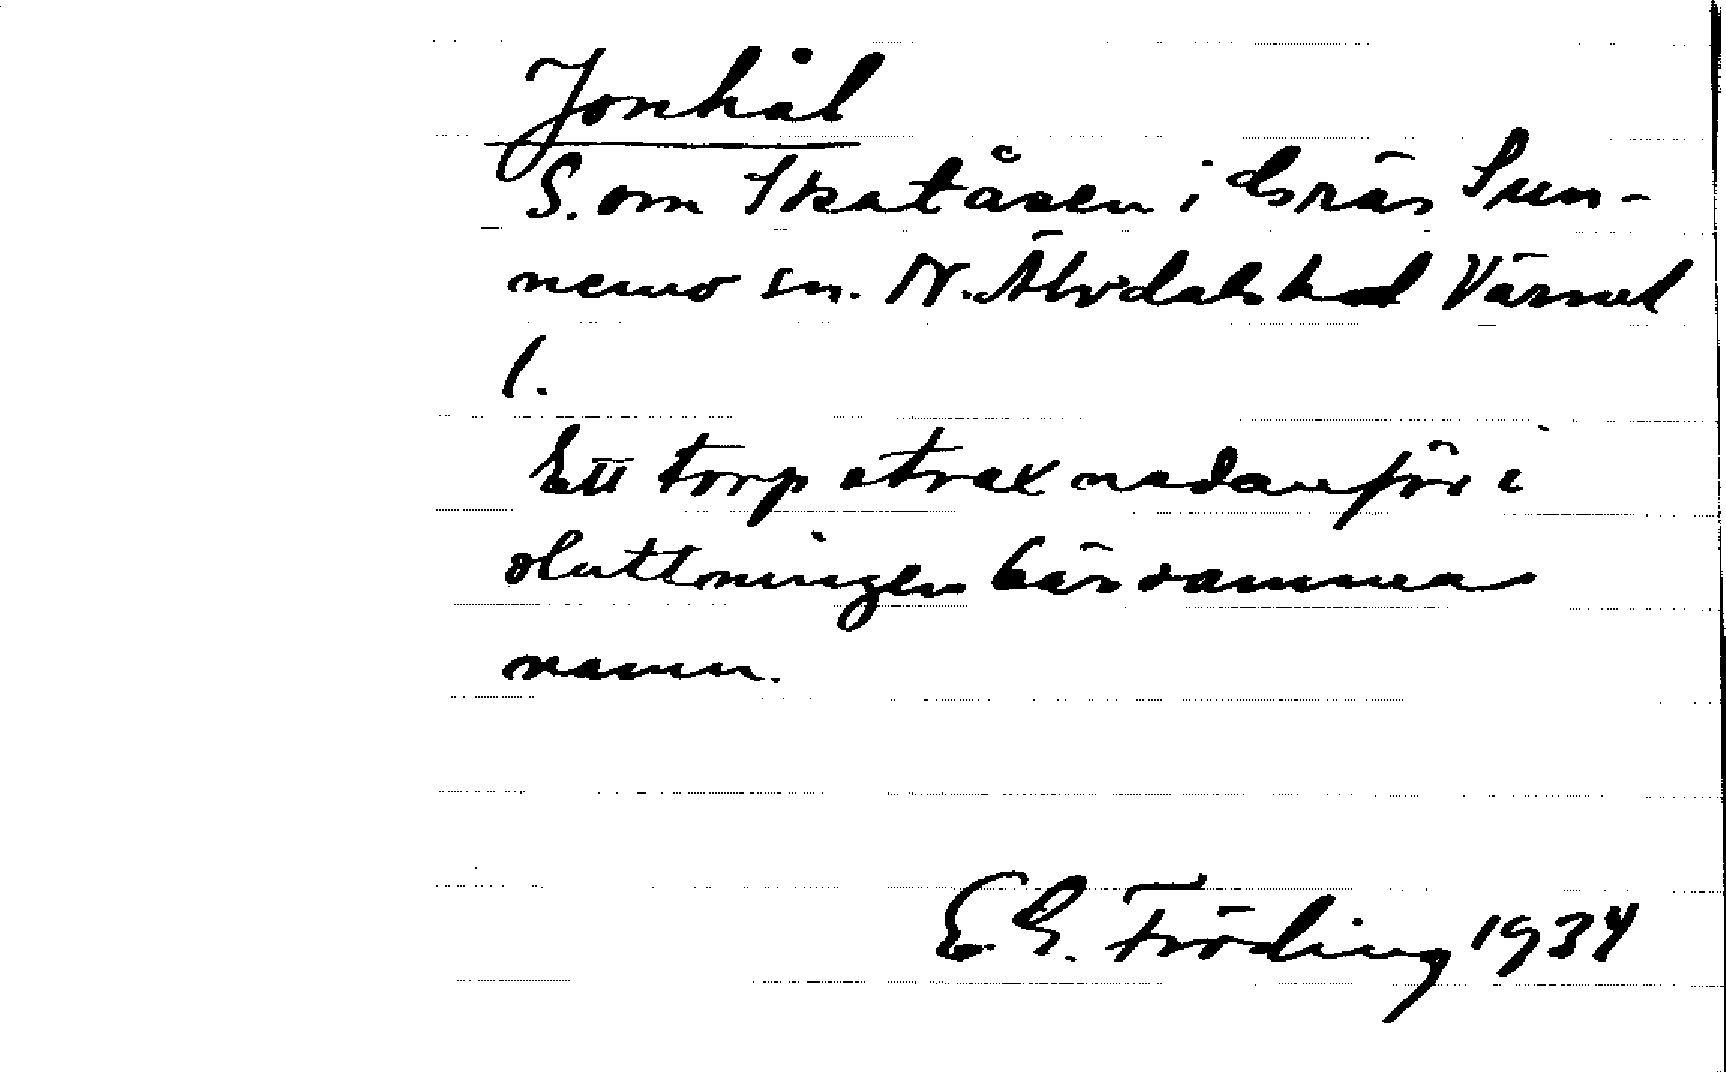 Jonhål
S. om Skatåsen i Gräs Sun-
nemo sn. N. Älvdals hd Värml
l.
Ett torp strax nedanför i
sluttningen bär samma
namn.
E. G. Fröding 1934